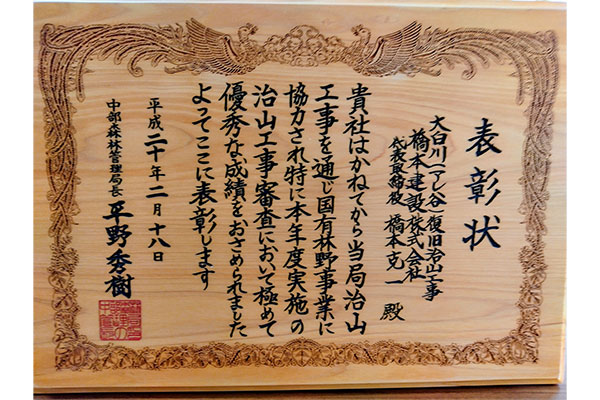 表彰状
大白川ニアレ谷復旧治山工事
橋本建設株式会社
代表取締役 橋本克一 殿
貴社はかねてから当局治山
工事を通じ国有林野事業に
協力され特に本年度実施の
治山工事審査において極めて
優秀な成績をおさめられました
よってここに表彰します
平成二十年二月十八日
中部森林管理局長 平野秀樹